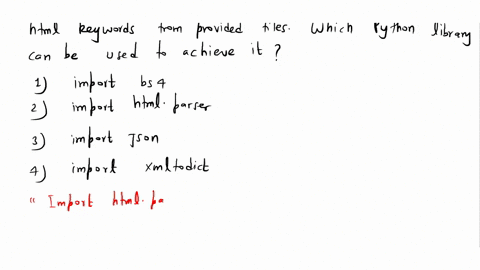 html keywords from provided files. Which Python library
can be used to achieve it ?
1) import bs4
2) import html.parser
3) import Json
4) import xmltodict
" Import html.pa